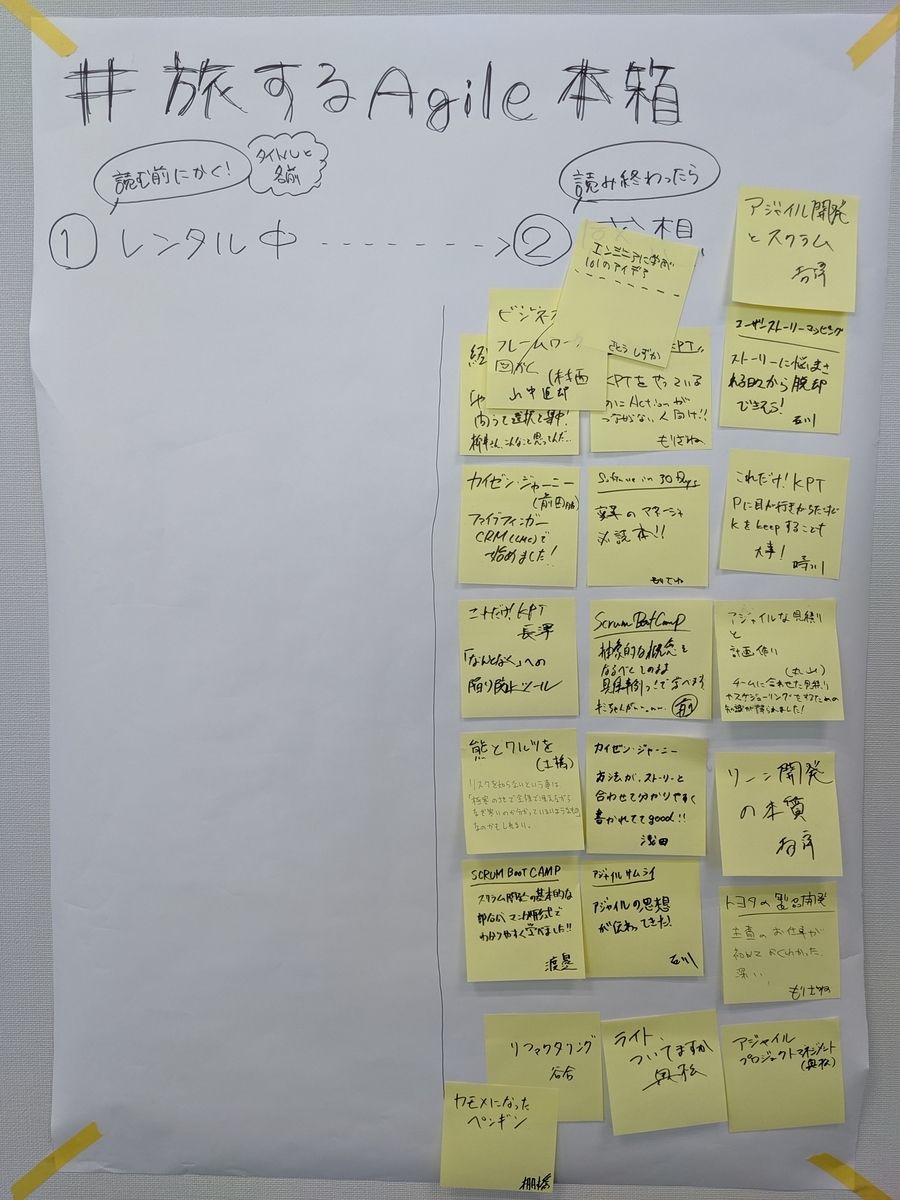 # 旅するAgile本箱
読む前にかく!
タイトルと
名前
読み終わったら
① レンタル中 ------> ②
想
アジャイル開発
とスクラム
エンジニアに学ぶ
101のアイデア
さとうしずか
ビジネス
フレームワーク
図かく
ユーザーストーリーマッピング
ストーリーに悩まさ
れる日々から脱却
できそう!
石川
経
内って選択と集中!
KPTをやっている
のにActionが
つながない人向け!!
もりざね
カイゼン・ジャーニー
ファイブフィンガー
で
始めました!
Software in 30 Days
のマネージャ
必読本!!
これだけ!KPT
Pに目が行きがちだけど
Kをkeepすることも
大事!
これだけ!KPT
長澤
「なんとなく」への
陥り防止ツール
Scrum Boot Camp
抽象的な概念を
アジャイルな見積り
と
計画作り
(丸山)
チームに合わせた見積り
やスケジューリングをするための
知識が得られました!
熊とワルツを
(土橋)
リスクを知らないという事は
カイゼン・ジャーニー
方法が、ストーリーと
合わせて分かりやすく
書かれててgood!!
浅田
リーン開発
の本質
SCRUM BOOT CAMP
スクラム開発の基本的な
部分がマンガ形式で
わかりやすく学べました!!
渡邉
アジャイルサムライ
アジャイルの思想
が伝わってきた!
石川
トヨタの製品開発
主査のお仕事が
初めてよくわかった
深い
もりざね
リファクタリング
谷合
ライト、
ついてますか
奥松
アジャイル
プロジェクトマネジメント
(奥松)
カモメになった
ペンギン
棚橋